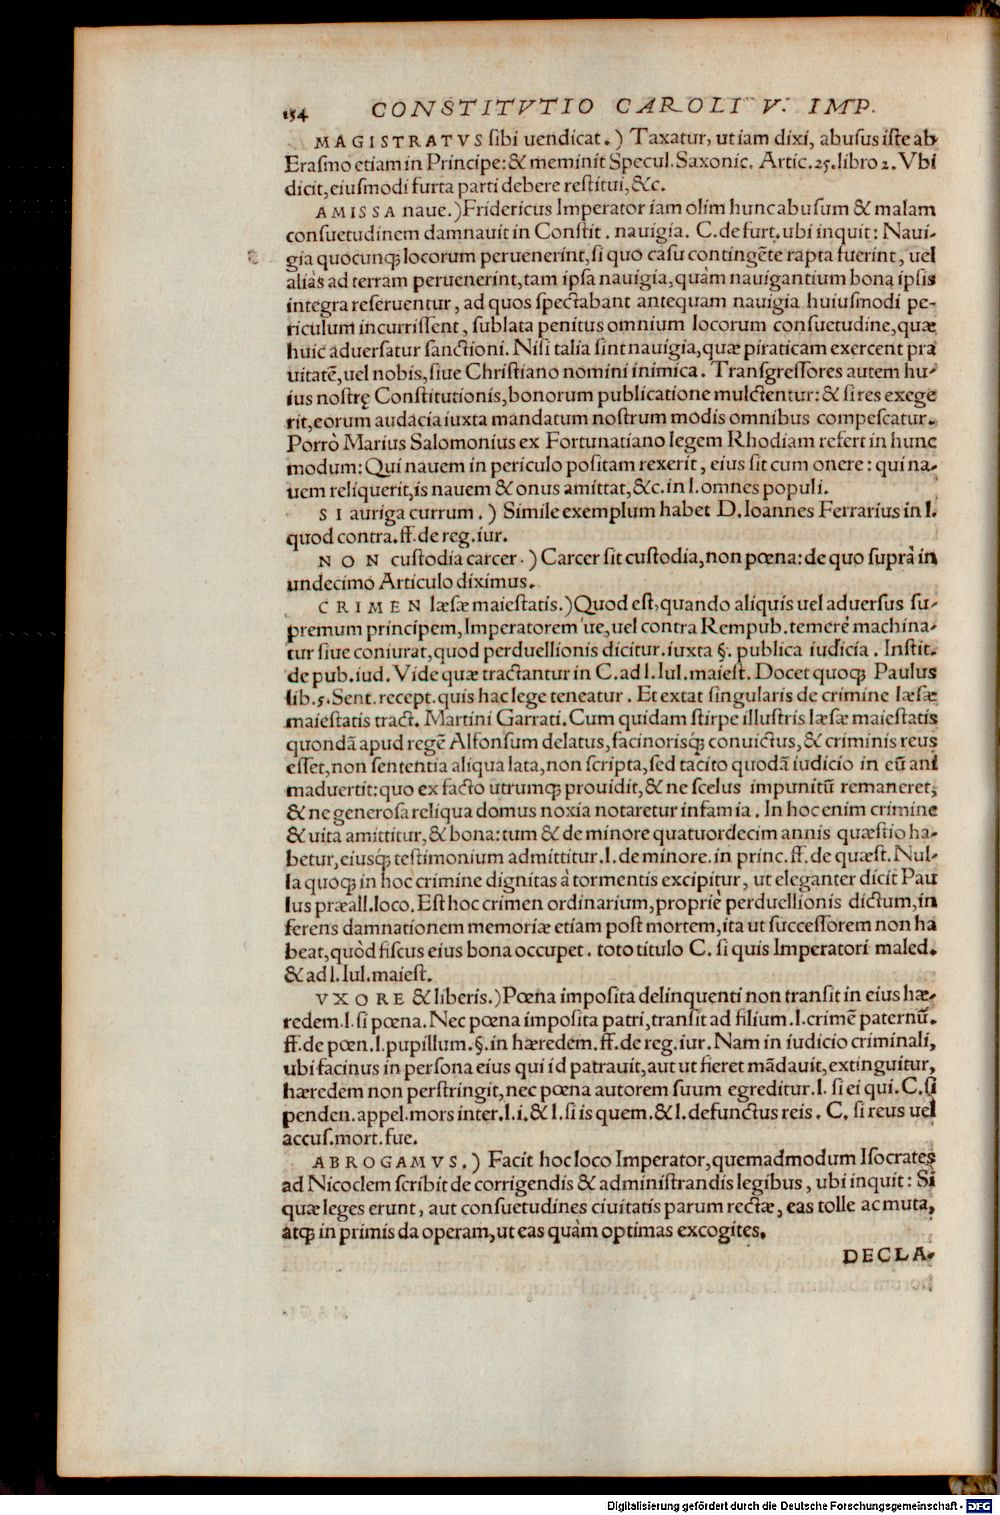 154 CONSTITVTIO CAROLI V. IMP.
MAGISTRATVS sibi uendicat.) Taxatur, ut iam dixi, abusus iste ab
Erasmo etiam in Principe: & meminit Specul. Saxonic. Artic. 25. libro 2. Vbi
dicit, eiusmodi furta parti debere restitui, &c.
AMISSA naue.) Fridericus Imperator iam olim hunc abusum & malam
consuetudinem damnauit in Constit. nauigia. C. de furt. ubi inquit: Naui-
gia quocunq; locorum peruenerint, si quo casu contingẽte rapta fuerint, uel
aliàs ad terram peruenerint, tam ipsa nauigia, quàm nauigantium bona ipsis
integra reseruentur, ad quos spectabant antequam nauigia huiusmodi pe-
riculum incurrissent, sublata penitus omnium locorum consuetudine, quæ
huic aduersatur sanctioni. Nisi talia sint nauigia, quæ piraticam exercent pra
uitatẽ, uel nobis, siue Christiano nomini inimica. Transgressores autem hu-
ius nostrę Constitutionis, bonorum publicatione mulctentur: & si res exege
rit, eorum audacia iuxta mandatum nostrum modis omnibus compescatur.
Porrò Marius Salomonius ex Fortunatiano legem Rhodiam refert in hunc
modum: Qui nauem in periculo positam rexerit, eius sit cum onere: qui na-
uem reliquerit, is nauem & onus amittat, &c. in l. omnes populi.
SI auriga currum.) Simile exemplum habet D. Ioannes Ferrarius in l.
quod contra. ff. de reg. iur.
NON custodia carcer.) Carcer sit custodia, non pœna: de quo suprà in
undecimo Articulo diximus.
CRIMEN læsæ maiestatis.) Quod est, quando aliquis uel aduersus su-
premum principem, Imperatorem'ue, uel contra Rempub. temerè machina-
tur siue coniurat, quod perduellionis dicitur. iuxta §. publica iudicia. Instit.
de pub. iud. Vide quæ tractantur in C. ad l. Iul. maiest. Docet quoq; Paulus
lib. 5. Sent. recept. quis hac lege teneatur. Et extat singularis de crimine læsæ
maiestatis tract. Martini Garrati. Cum quidam stirpe illustris læsæ maiestatis
quondã apud regẽ Alfonsum delatus, facinorisq́; conuictus, & criminis reus
esset, non sententia aliqua lata, non scripta, sed tacito quodã iudicio in eũ ani
maduertit: quo ex facto utrumq; prouidit, & ne scelus impunitũ remaneret,
& ne generosa reliqua domus noxia notaretur infamia. In hoc enim crimine
& uita amittitur, & bona: tum & de minore quatuordecim annis quæstio ha-
betur, eiusq́; testimonium admittitur. l. de minore. in princ. ff. de quæst. Nul-
la quoq; in hoc crimine dignitas à tormentis excipitur, ut eleganter dicit Pau
lus præall. loco. Est hoc crimen ordinarium, propriè perduellionis dictum, in
ferens damnationem memoriæ etiam post mortem, ita ut successorem non ha
beat, quòd fiscus eius bona occupet. toto titulo C. si quis Imperatori maled.
& ad l. Iul. maiest.
VXORE & liberis.) Pœna imposita delinquenti non transit in eius hæ-
redem. l. si pœna. Nec pœna imposita patri, transit ad filium. l. crimẽ paternũ.
ff. de pœn. l. pupillum. §. in hæredem. ff. de reg. iur. Nam in iudicio criminali,
ubi facinus in persona eius qui id patrauit, aut ut fieret mãdauit, extinguitur,
hæredem non perstringit, nec pœna autorem suum egreditur. l. si ei qui. C. si
penden. appel. mors inter. l. i. & l. si is quem. & l. defunctus reis. C. si reus uel
accus. mort. fue.
ABROGAMVS.) Facit hoc loco Imperator, quemadmodum Isocrates
ad Nicoclem scribit de corrigendis & administrandis legibus, ubi inquit: Si
quæ leges erunt, aut consuetudines ciuitatis parum rectæ, eas tolle ac muta,
atq; in primis da operam, ut eas quàm optimas excogites.
DECLA-
Digitalisierung gefördert durch die Deutsche Forschungsgemeinschaft - DFG